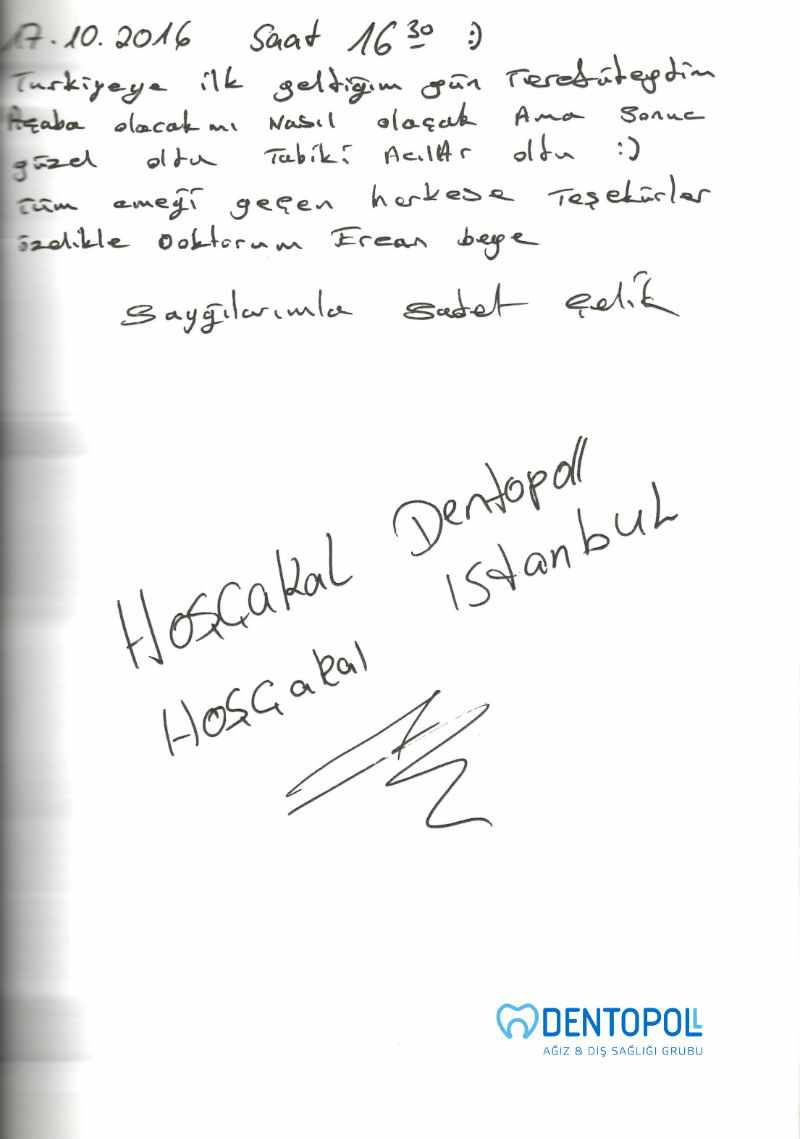 17.10.2016 Saat 16 30 :)
Turkiyeye ilk geldiğim gün Teretüteydim
Açaba olacak mı Nasıl olaçak Ama Sonuc
güzel oldu Tabiki Acılar oldu :)
Tüm emeği geçen herkese Teşekürler
özelikle Doktorum Ercan beye
Sayğılarımla Sadet Çelik
Hoşçakal Dentopoll
Hoşçakal Istanbul
DENTOPOLL
AĞIZ & DİŞ SAĞLIĞI GRUBU